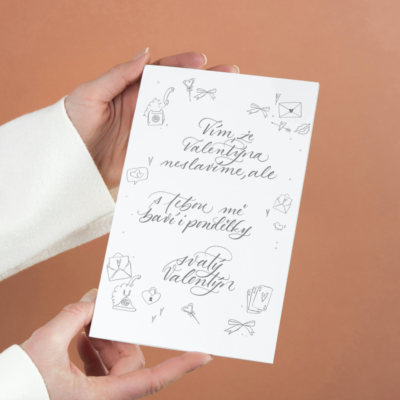 Vím, že
Valentýna
neslavíme, ale
s tebou mě
baví i pondělky
svatý
Valentýn